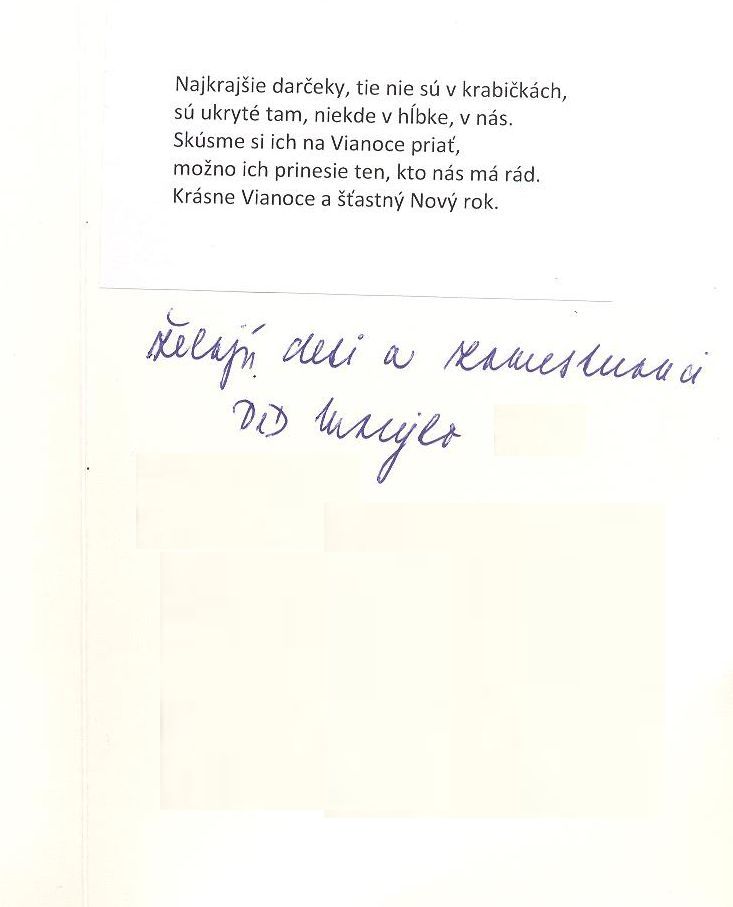 Najkrajšie darčeky, tie nie sú v krabičkách,
sú ukryté tam, niekde v hĺbke, v nás.
Skúsme si ich na Vianoce priať,
možno ich prinesie ten, kto nás má rád.
Krásne Vianoce a šťastný Nový rok.
želajú deti a zamestnanci
DeD